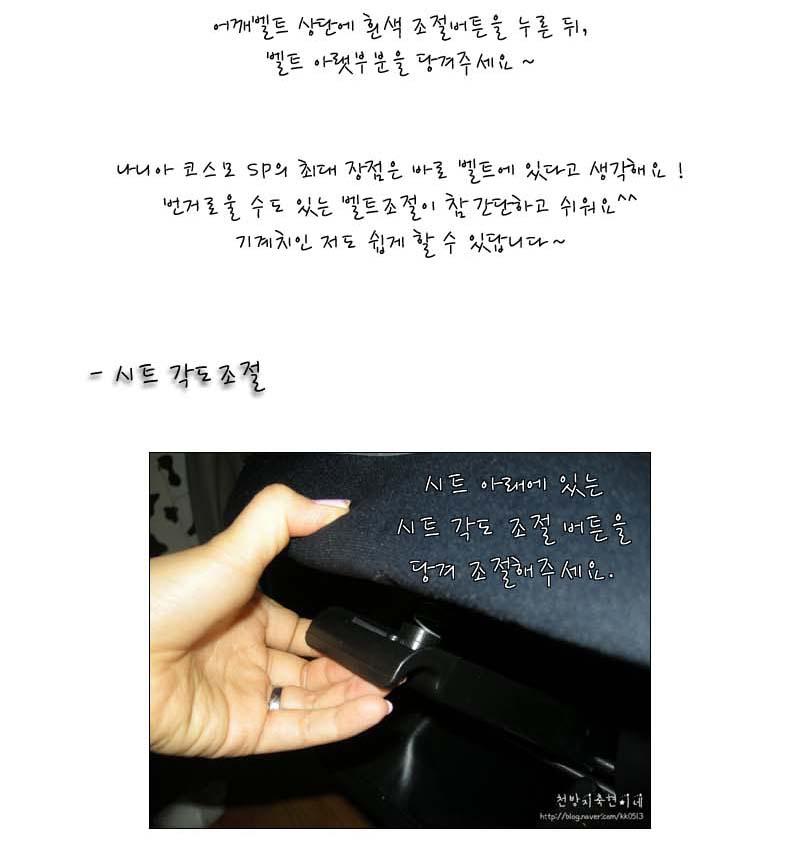 어깨벨트 상단에 흰색 조절버튼을 누른 뒤,
벨트 아랫부분을 당겨주세요 ~
나니아 코스모 SP의 최대 장점은 바로 벨트에 있다고 생각해요 !
번거로울 수도 있는 벨트조절이 참 간단하고 쉬워요^^
기계치인 저도 쉽게 할 수 있답니다~
- 시트 각도조절
시트 아래에 있는
시트 각도 조절 버튼을
당겨 조절해주세요.
천방지축현이네
http://blog.naver.com/kk0513